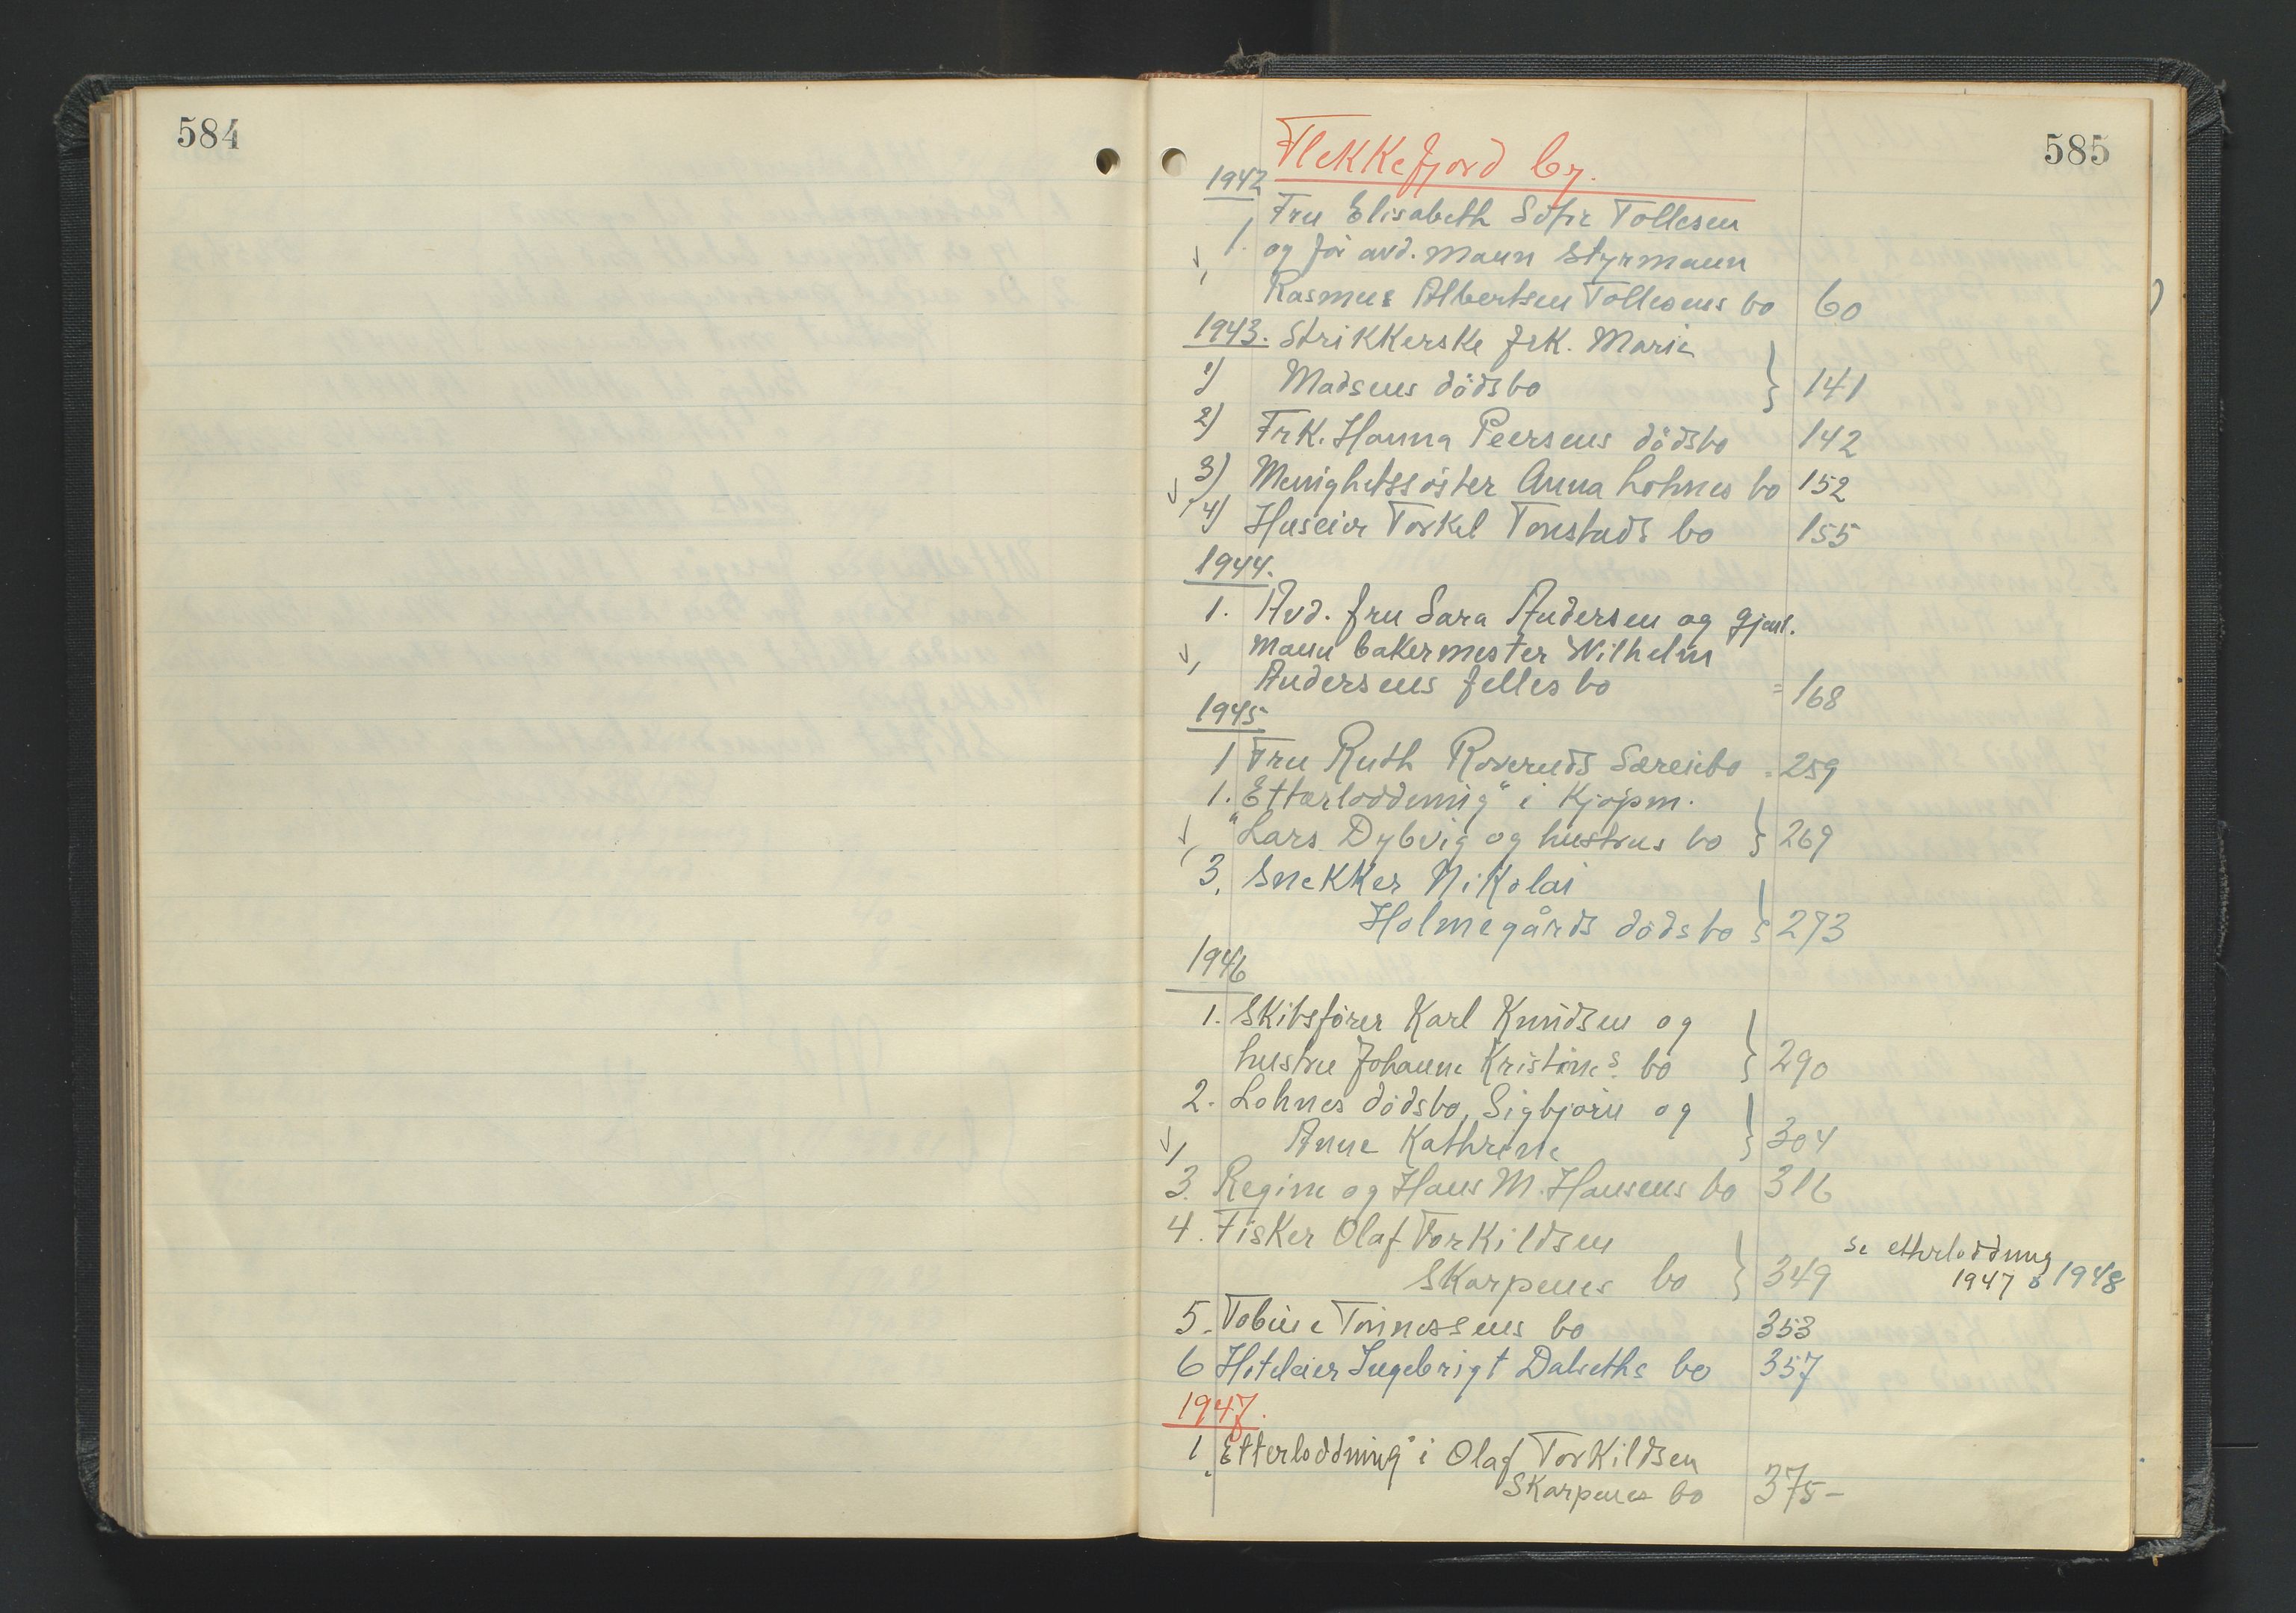 584
585
Flekkefjord by.
1942
Fru Elisabeth Sofie Tollesen
1. og for avd. mann Styrmann
Rasmus Albertsen Tollesens bo 60
1943. Strikkerske frk. Marie
1) Madsens dödsbo } 141
2) Frk. Hanna Peersens dödsbo 142
3) Menighetssöster Anna Lohnes bo 152
4) Huseier Torkel Tonstads bo 155
1944.
1. Avd. fru Sara Andersen og gjenl.
mann bakermester Wilhelm
Andersens fellesbo = 168
1945
1 Fru Ruth Roseruds Særeiebo = 259
1. "Etterloddning" i Kjøpm.
Lars Dybvig og hustrus bo } 269
3. Snekker Nikolai
Holmegårds dödsbo } 273
1946
1. Skibsförer Karl Knudsen og
hustru Johanne Kristines bo } 290
2. Lohnes dödsbo, Sigbjørn og
Anne Kathrine } 304
3. Regine og Hans M. Hansens bo 316
4. Fisker Olaf Torkildsen
Skarpenes bo } 349 se etterloddning
1947 o 1948
5. Tobine Tönnessens bo 353
6 Hoteleier Ingebrigt Dalseths bo 357
1947.
1. "Etterloddning" i Olaf Torkildsen
Skarpenes bo 375-